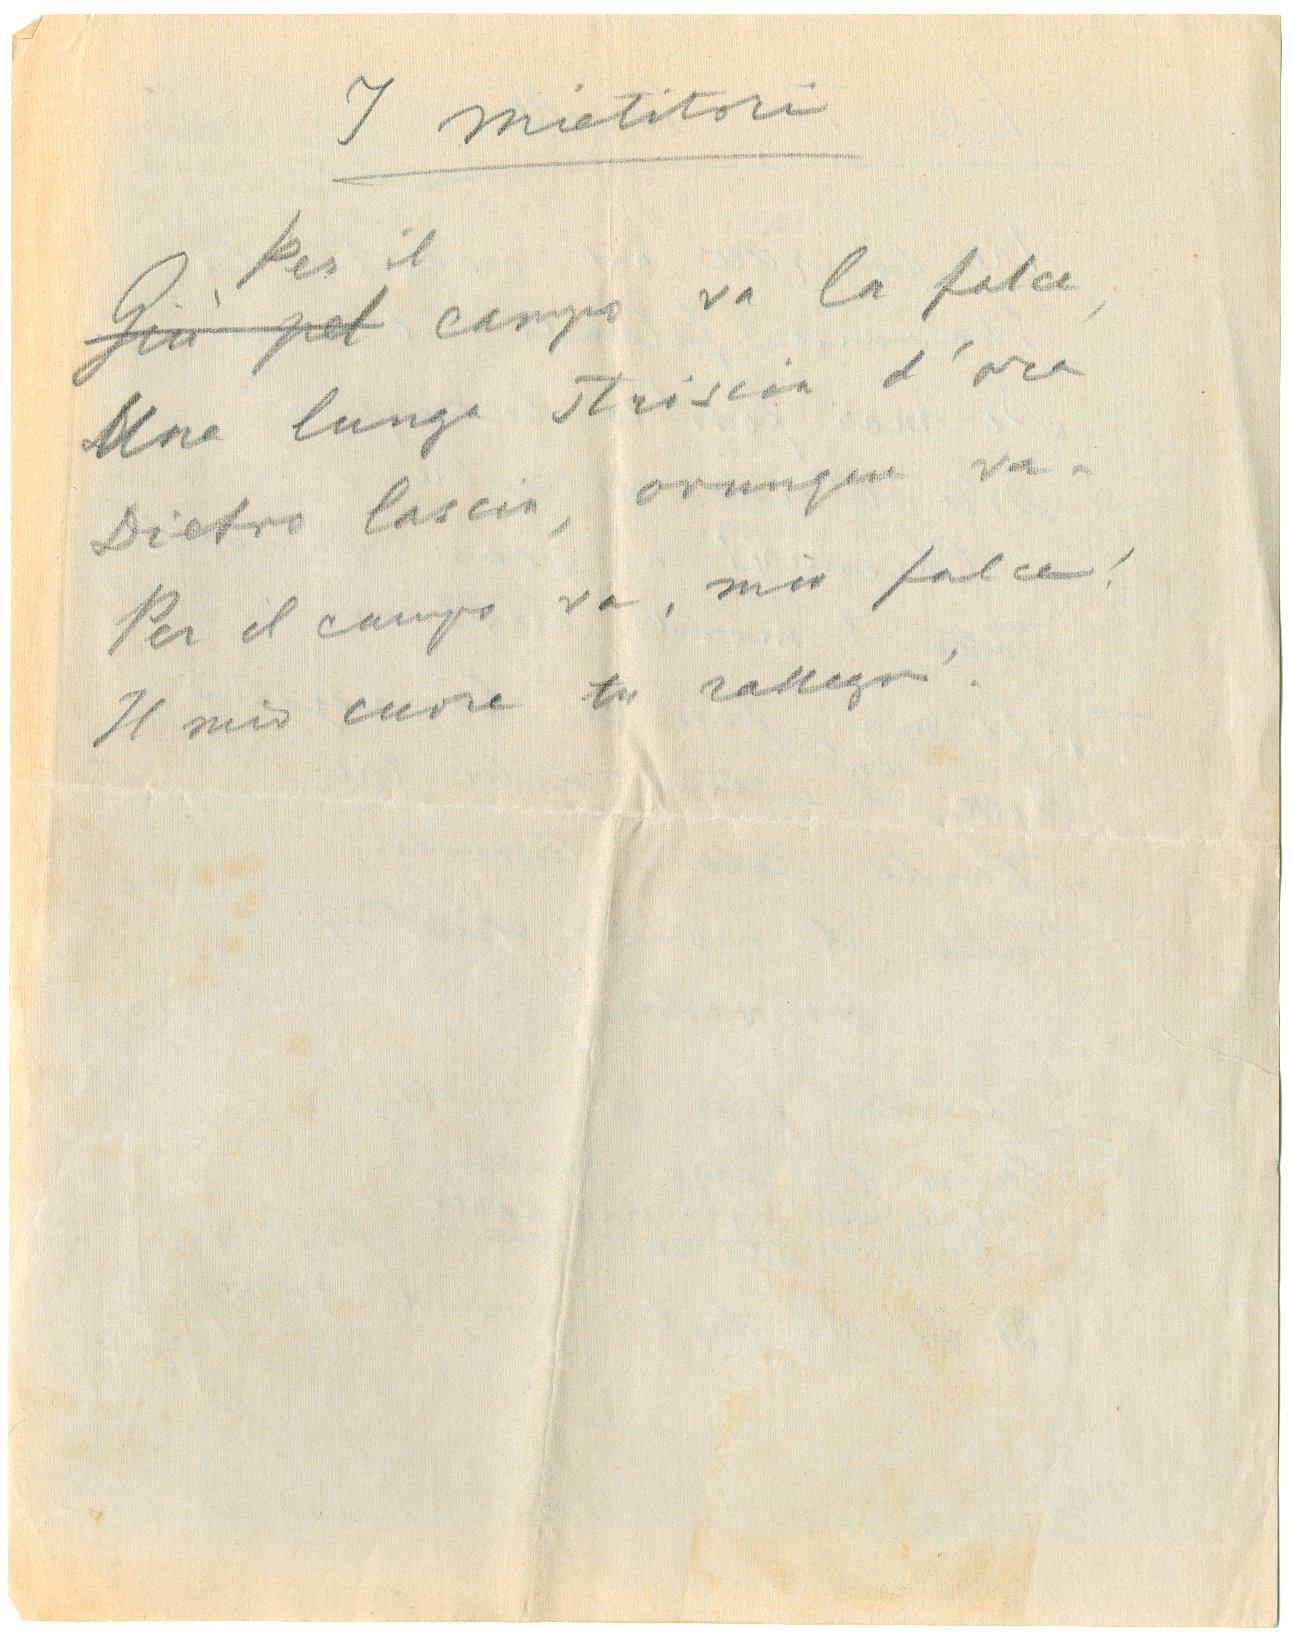 I mietitori
Per il
Giù pel campo va la falce,
Una lunga striscia d'oro
Dietro lascia, ovunque va.
Per il campo va, mia falce!
Il mio cuore tu rallegri.